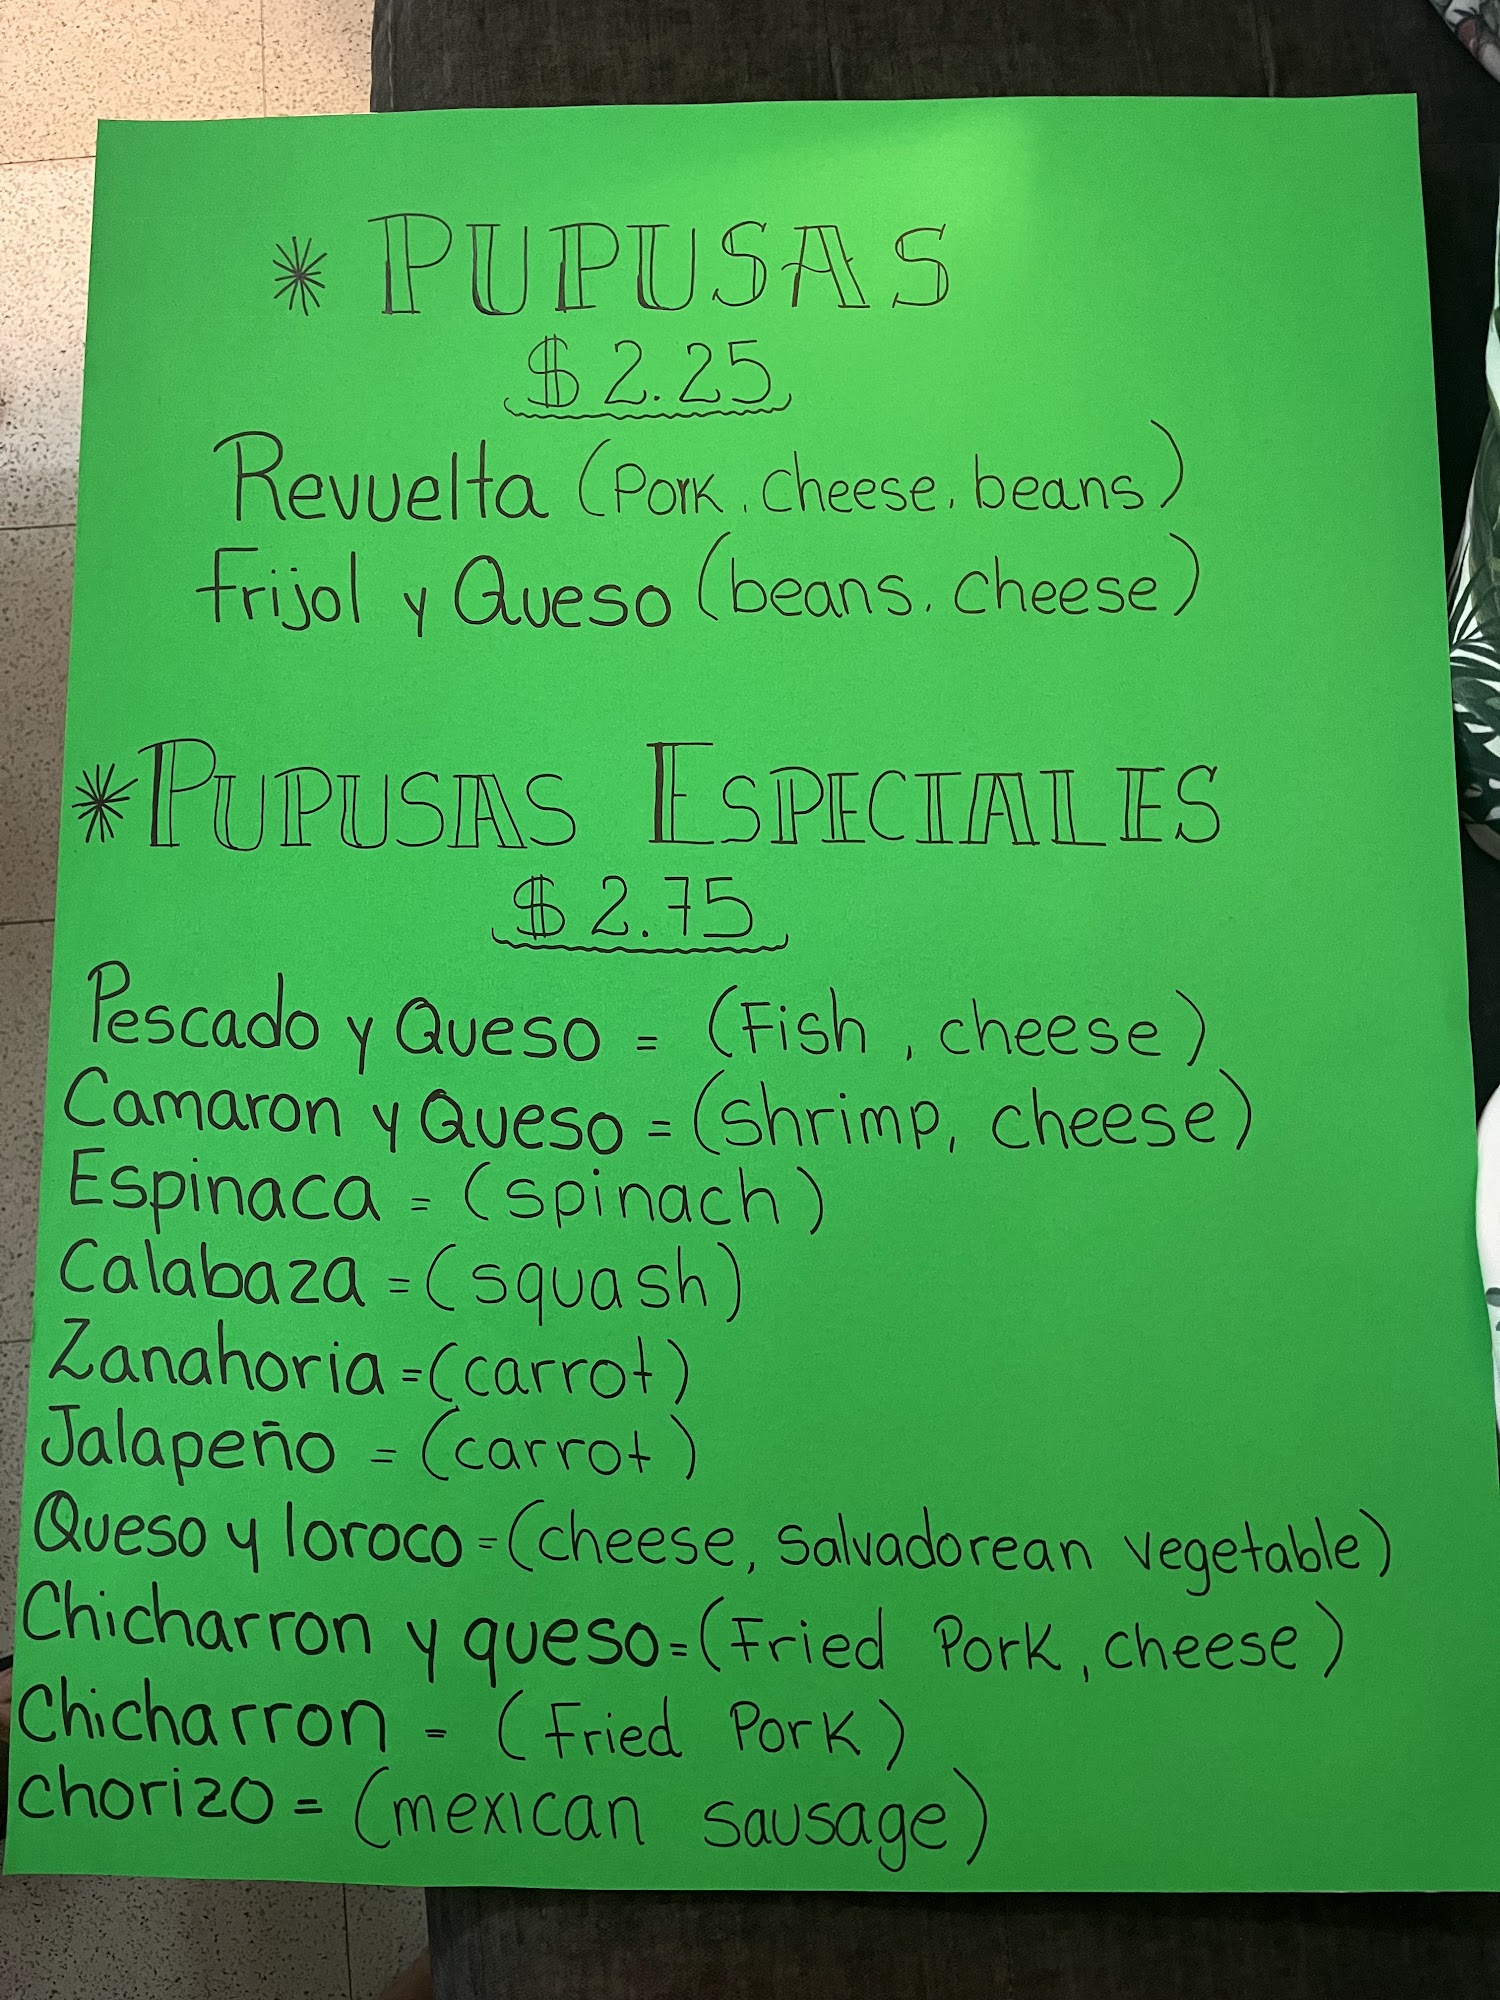 * PUPUSAS
$2.25
Revuelta (Pork, cheese, beans)
Frijol y Queso (beans, cheese)
* PUPUSAS ESPECIALES
$2.75
Pescado y Queso = (Fish, cheese)
Camaron y Queso = (Shrimp, cheese)
Espinaca = (spinach)
Calabaza = (squash)
Zanahoria = (carrot)
Jalapeño = (carrot)
Queso y loroco = (cheese, Salvadorean vegetable)
Chicharron y queso = (Fried Pork, cheese)
Chicharron = (Fried Pork)
Chorizo = (mexican sausage)